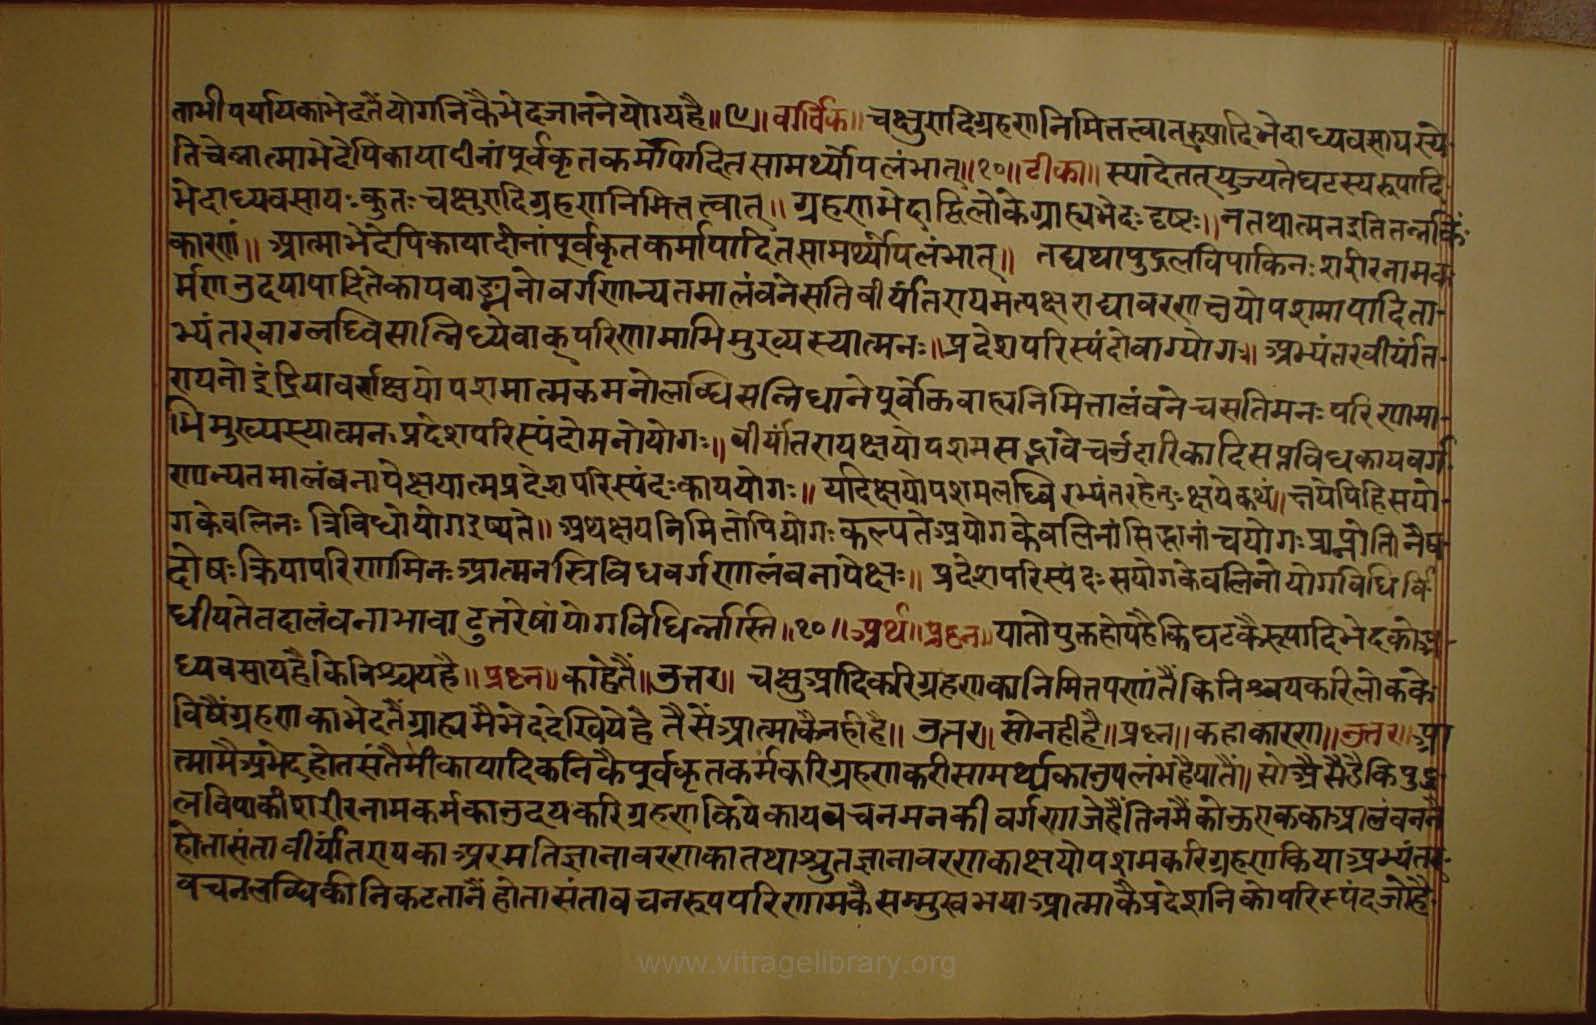 तोभीपर्यायकाभेदतैंयोगनिकैभेदजाननेयोग्यहै॥९॥वार्तिक॥चक्षुरादिग्रहणनिमित्तत्वात्रूपादिभेदाध्यवसायस्ये-
तिचेन्नात्माभेदेपिकायादीनांपूर्वकृतकर्मापादितसामर्थ्योपलंभात्॥१०॥टीका॥स्यादेतत्युज्यतेघटस्यरूपादि-
भेदाध्यवसायःकुतःचक्षुरादिग्रहणनिमित्तत्वात्॥ग्रहणभेदाद्धिलोकेग्राह्यभेदःदृष्टः॥नतथात्मनइतितन्नकिं-
कारणं॥आत्माभेदेपिकायादीनांपूर्वकृतकर्मापादितसामर्थ्योपलंभात्॥तद्यथापुद्गलविपाकिनःशरीरनामक-
र्मणउदयापादितेकायवाङ्मनोवर्गणान्यतमालंवनेसतिवीर्यांतरायमत्यक्षराद्यावरणक्षयोपशमापादिता-
भ्यंतरवाग्लब्धिसान्निध्येवाक्परिणामाभिमुख्यस्यात्मनः॥प्रदेशपरिस्पंदोवाग्योगः॥अभ्यंतरवीर्यांत-
रायनोइंद्रियावर्णक्षयोपशमात्मकमनोलब्धिसन्निधानेपूर्वोक्तवाह्यनिमित्तालंवनेचसतिमनःपरिणामा-
भिमुख्यस्यात्मनःप्रदेशपरिस्पंदोमनोयोगः॥वीर्यांतरायक्षयोपशमसद्भावेचऔदारिकादिसप्तविधकायवर्ग-
णान्यतमालंबनापेक्षयात्मप्रदेशपरिस्पंदःकाययोगः॥यदिक्षयोपशमलब्धिरभ्यंतरहेतुःक्षयेकथं॥क्षयेपिहिसयो-
गकेवलिनःत्रिविधोयोगइष्यते॥अथक्षयनिमित्तोपियोगःकल्पतेअयोगकेवलिनांसिद्धानांचयोगःप्राप्नोति॥नैष-
दोषःक्रियापरिणामिनःआत्मनस्त्रिविधवर्गणालंबनापेक्षः॥प्रदेशपरिस्पंदःसयोगकेवलिनोयोगविधिर्वि-
धीयतेतदालंवनाभावादुत्तरेषांयोगविधिर्न्नास्ति॥१०॥अर्थ॥प्रश्न॥यातोयुक्तहोयहैकिघटकैरूपादिभेदकोअ-
ध्यवसायहैकिनिश्चयहै॥प्रश्न॥काहेतैं॥उत्तर॥चक्षुआदिकरिग्रहणकानिमित्तपणांतैंकिनिश्चयकरिलोकके
विषैंग्रहणकाभेदतैंग्राह्यमैभेददेखियेहैतैसेंआत्माकैनहीहै॥उत्तर॥सोनहीहै॥प्रश्न॥कहाकारण॥उत्तर॥आ
त्मामैअभेदहोतसंतैभीकायादिकनिकैपूर्वकृतकर्मकरिग्रहणकरीसामर्थ्यकाउपलंभहैयातैं॥सोअैसैहैकिपुद्ग-
लविपाकीशरीरनामकर्मकाउदयकरिग्रहणकियेकायवचनमनकीवर्गणाजेहैंतिनमैंकोऊएककाआलंवननै
होतासंतावीर्यांतरायकाअरमतिज्ञानावरणकातथाश्रुतज्ञानावरणकाक्षयोपशमकरिग्रहणकियाअभ्यंतर-
वचनलब्धिकीनिकटतानैंहोतासंतावचनरूपपरिणामकैसन्मुखभयाआत्माकैप्रदेशनिकोपरिस्पंदजोहै-
www.vitragelibrary.org